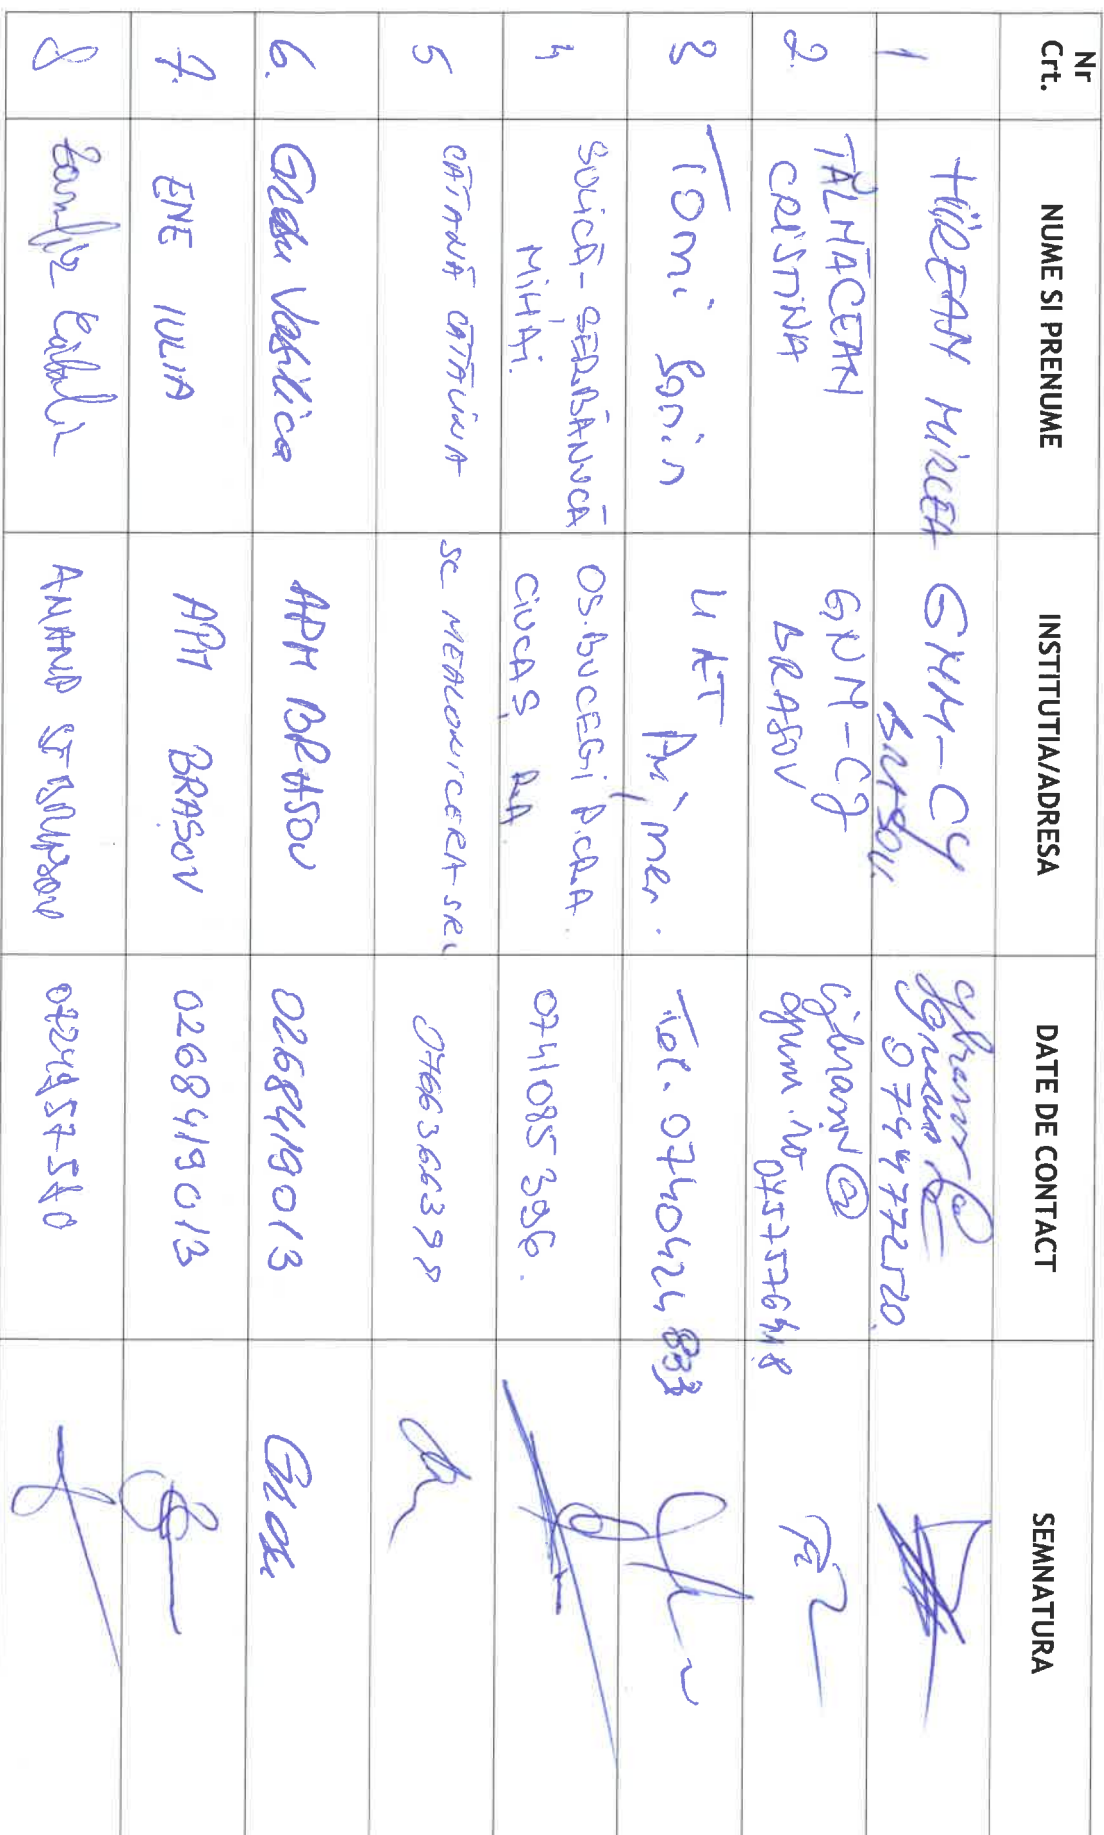 Nr Crt. NUME SI PRENUME INSTITUTIA/ADRESA DATE DE CONTACT SEMNATURA
1 MIRCEA GNM-CJ BRASOV. 0744772520
2. TĂLMĂCEAN CRISTINA GNM-CJ BRASOV cjbrasov@gnm.ro 0757576418
3 Tomi Sorin UAT Prejmer. Tel. 0740424833
4 SULICĂ-ȘERBĂNUCĂ MIHAI. OS. BUCEGI P. CRA. CIUCAS RA 0741085396.
5 CĂTANĂ CĂTĂLINA SC MEALONICERA SRL 0766366399
6. Vasilica APM BRASOV 0268419013
7. ENE IULIA APM BRASOV 0268419013
8